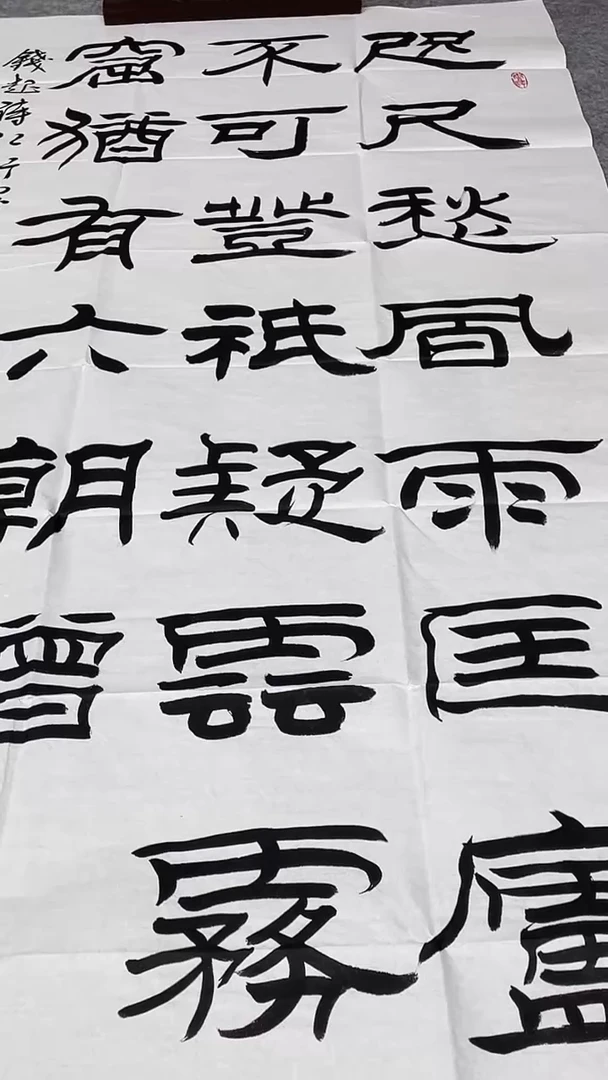 咫尺愁風雨匡廬
不可登祇疑雲霧
窟猶有六朝僧
錢起詩江行